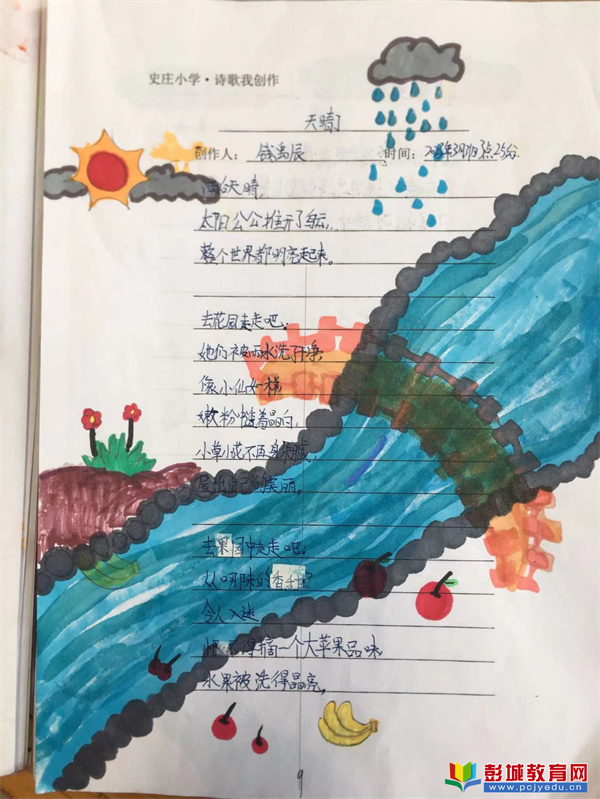 史庄小学·诗歌我创作
天晴了
创作人：钱禹辰 时间：
雨后天晴，
太阳公公推开了乌云，
整个世界都明亮起来。
去花园走走吧；
她们被雨水洗干净，
像小仙女一样，
嫩粉 着晶白，
小草小花不再身
出自己的美丽。
去果园中走走吧；
香甜
令人入迷
得摘一个大苹果品味，
水果被洗得晶亮。
9
彭城教育网
www.pcjyedu.cn